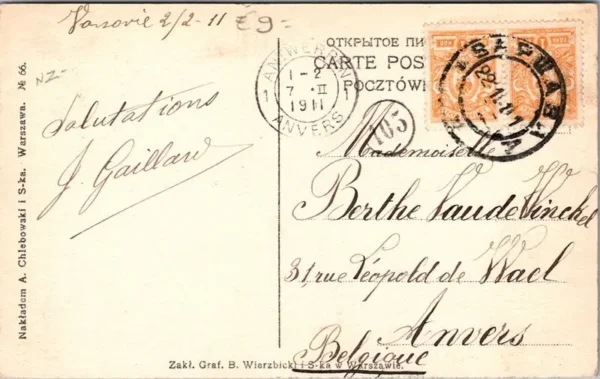 Varsovie 2/2-11
£9=
NZ-
ОТКРЫТОЕ ПИ
CARTE POS
POCZTÓWK
ANTWERPEN
1 1-2 1
7 ·II
1911
ANVERS
ВАРШАВА
105
Salutations
J. Gaillard
Mademoiselle
Berthe Vaude Winckel
31, rue Léopold de Wael
Anvers
Belgique
Nakładem A. Chlebowski i S-ka. Warszawa. № 66.
Zakł. Graf. B. Wierzbicki i S-ka w Warszawie.